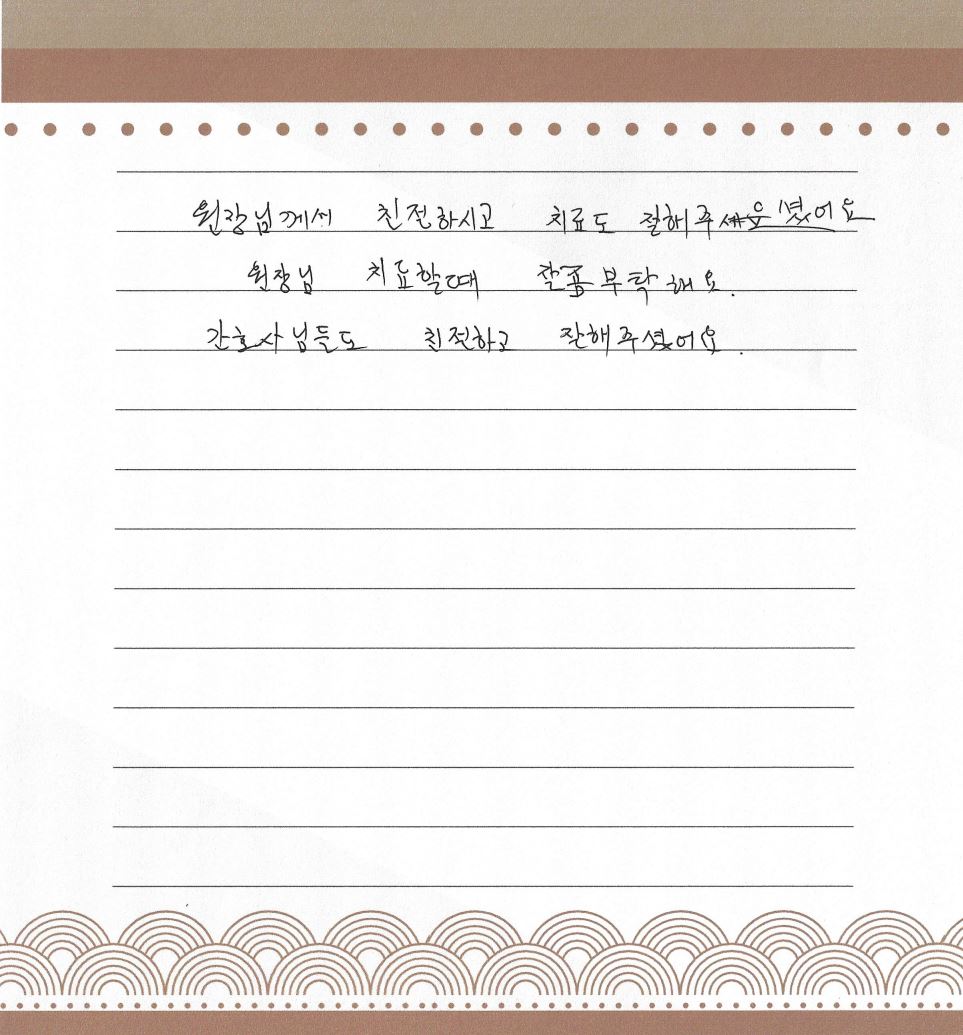 원장님께서 친절하시고 치료도 잘해주셨어요
원장님 치료할때 잘좀부탁해요.
간호사님들도 친절하고 잘해주셨어요.